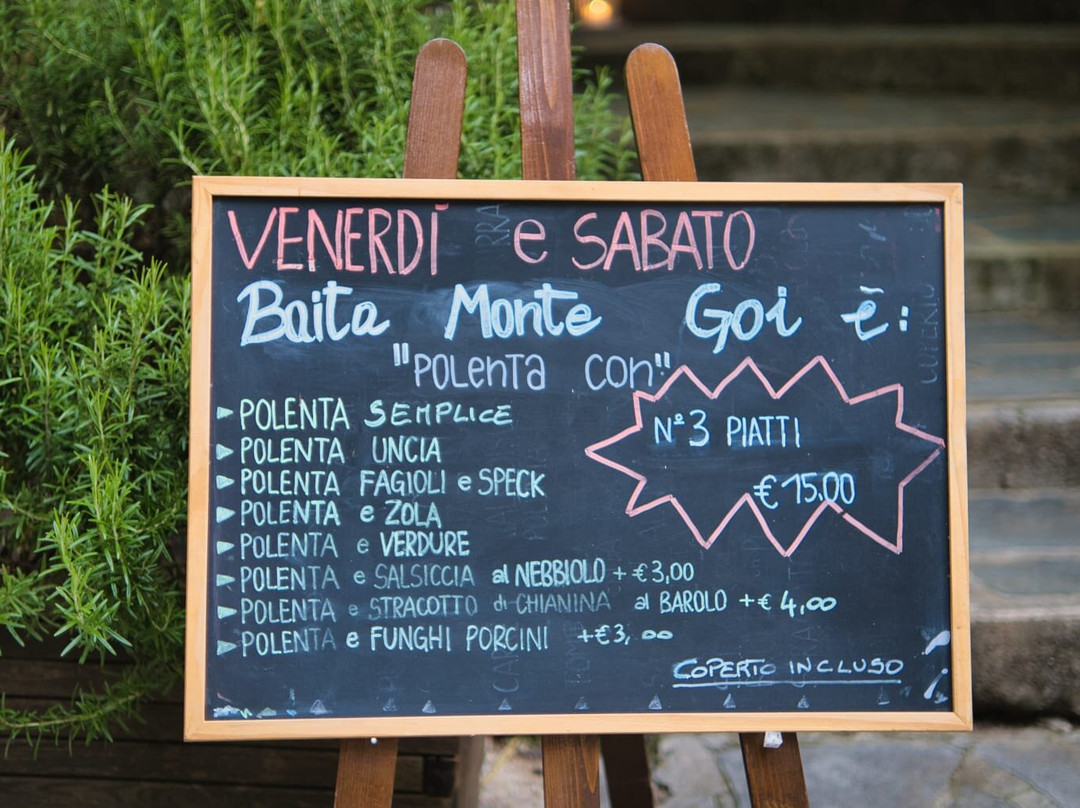 VENERDÌ e SABATO
Baita Monte Goi è:
"POLENTA CON"
N° 3 PIATTI
€ 15.00
► POLENTA SEMPLICE
► POLENTA UNCIA
► POLENTA FAGIOLI e SPECK
► POLENTA e ZOLA
► POLENTA e VERDURE
► POLENTA e SALSICCIA al NEBBIOLO + € 3,00
► POLENTA e STRACOTTO di CHIANINA al BAROLO + € 4,00
► POLENTA e FUNGHI PORCINI + € 3,00
COPERTO INCLUSO